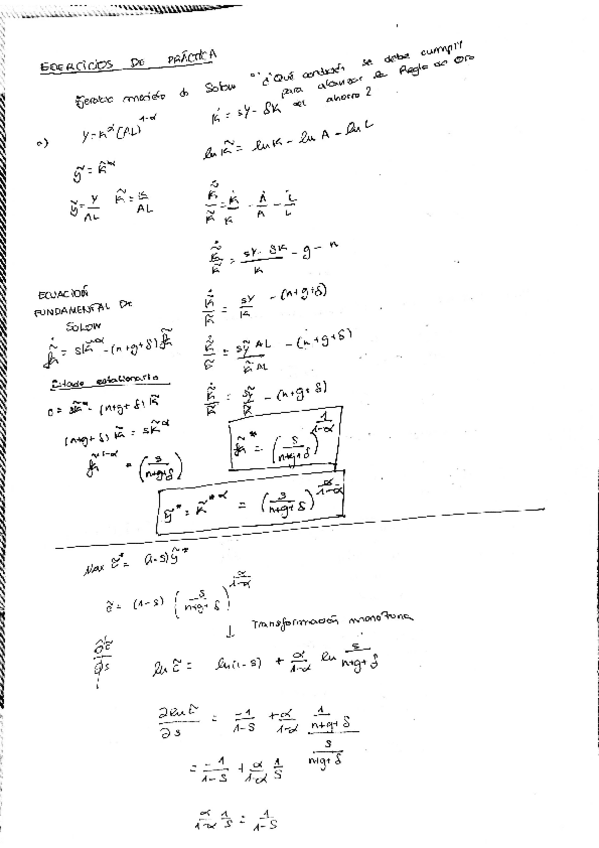 EJERCICIOS DE PRÁCTICA
Ejercicio modelo de Solow "¿Qué condición se debe cumplir
para alcanzar la Regla de Oro
del ahorro?
a) Y = K^α (AL)^{1-α}
K̇ = sY - δK
ỹ = k̃^α
ln k̃ = ln K - ln A - ln L
ỹ = Y/AL   k̃ = K/AL
k̃̇/k̃ = K̇/K - Ȧ/A - L̇/L
k̃̇/k̃ = (sY - δK)/K - g - n
ECUACIÓN
FUNDAMENTAL DE
SOLOW
k̃̇/k̃ = sY/K - (n+g+δ)
k̃̇ = sk̃^α - (n+g+δ) k̃
k̃̇/k̃ = sỹ AL/k̃ AL - (n+g+δ)
Estado estacionario
k̃̇/k̃ = sỹ/k̃ - (n+g+δ)
0 = sk̃^α - (n+g+δ) k̃
(n+g+δ) k̃ = sk̃^α
k̃* = (s/(n+g+δ))^{1/(1-α)}
k̃^{1-α} = (s/(n+g+δ))
ỹ* = k̃*^α = (s/(n+g+δ))^{α/(1-α)}
Max c̃* = (1-s) ỹ*
c̃ = (1-s) (s/(n+g+δ))^{α/(1-α)}
↓ Transformación monótona
∂c̃/∂s
ln c̃ = ln(1-s) + α/(1-α) ln s/(n+g+δ)
∂ln c̃/∂s = -1/(1-s) + α/(1-α) (1/(n+g+δ))/(s/(n+g+δ))
= -1/(1-s) + α/(1-α) 1/s
α/(1-α) 1/s = 1/(1-s)